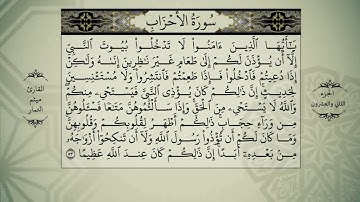 سُورَةُ الأَحْزَابِ
يَٰٓأَيُّهَا ٱلَّذِينَ ءَامَنُوا۟ لَا تَدْخُلُوا۟ بُيُوتَ ٱلنَّبِىِّ
إِلَّآ أَن يُؤْذَنَ لَكُمْ إِلَىٰ طَعَامٍ غَيْرَ نَٰظِرِينَ إِنَىٰهُ وَلَٰكِنْ
إِذَا دُعِيتُمْ فَٱدْخُلُوا۟ فَإِذَا طَعِمْتُمْ فَٱنتَشِرُوا۟ وَلَا مُسْتَـْٔنِسِينَ
لِحَدِيثٍ إِنَّ ذَٰلِكُمْ كَانَ يُؤْذِى ٱلنَّبِىَّ فَيَسْتَحْىِۦ مِنكُمْ
وَٱللَّهُ لَا يَسْتَحْىِۦ مِنَ ٱلْحَقِّ وَإِذَا سَأَلْتُمُوهُنَّ مَتَٰعًا فَسْـَٔلُوهُنَّ
مِن وَرَآءِ حِجَابٍ ذَٰلِكُمْ أَطْهَرُ لِقُلُوبِكُمْ وَقُلُوبِهِنَّ
وَمَا كَانَ لَكُمْ أَن تُؤْذُوا۟ رَسُولَ ٱللَّهِ وَلَآ أَن تَنكِحُوٓا۟ أَزْوَٰجَهُۥ
مِنۢ بَعْدِهِۦٓ أَبَدًا إِنَّ ذَٰلِكُمْ كَانَ عِندَ ٱللَّهِ عَظِيمًا ٥٣
الجزء
الثاني والعشرون
القارئ
ميثم
التمار